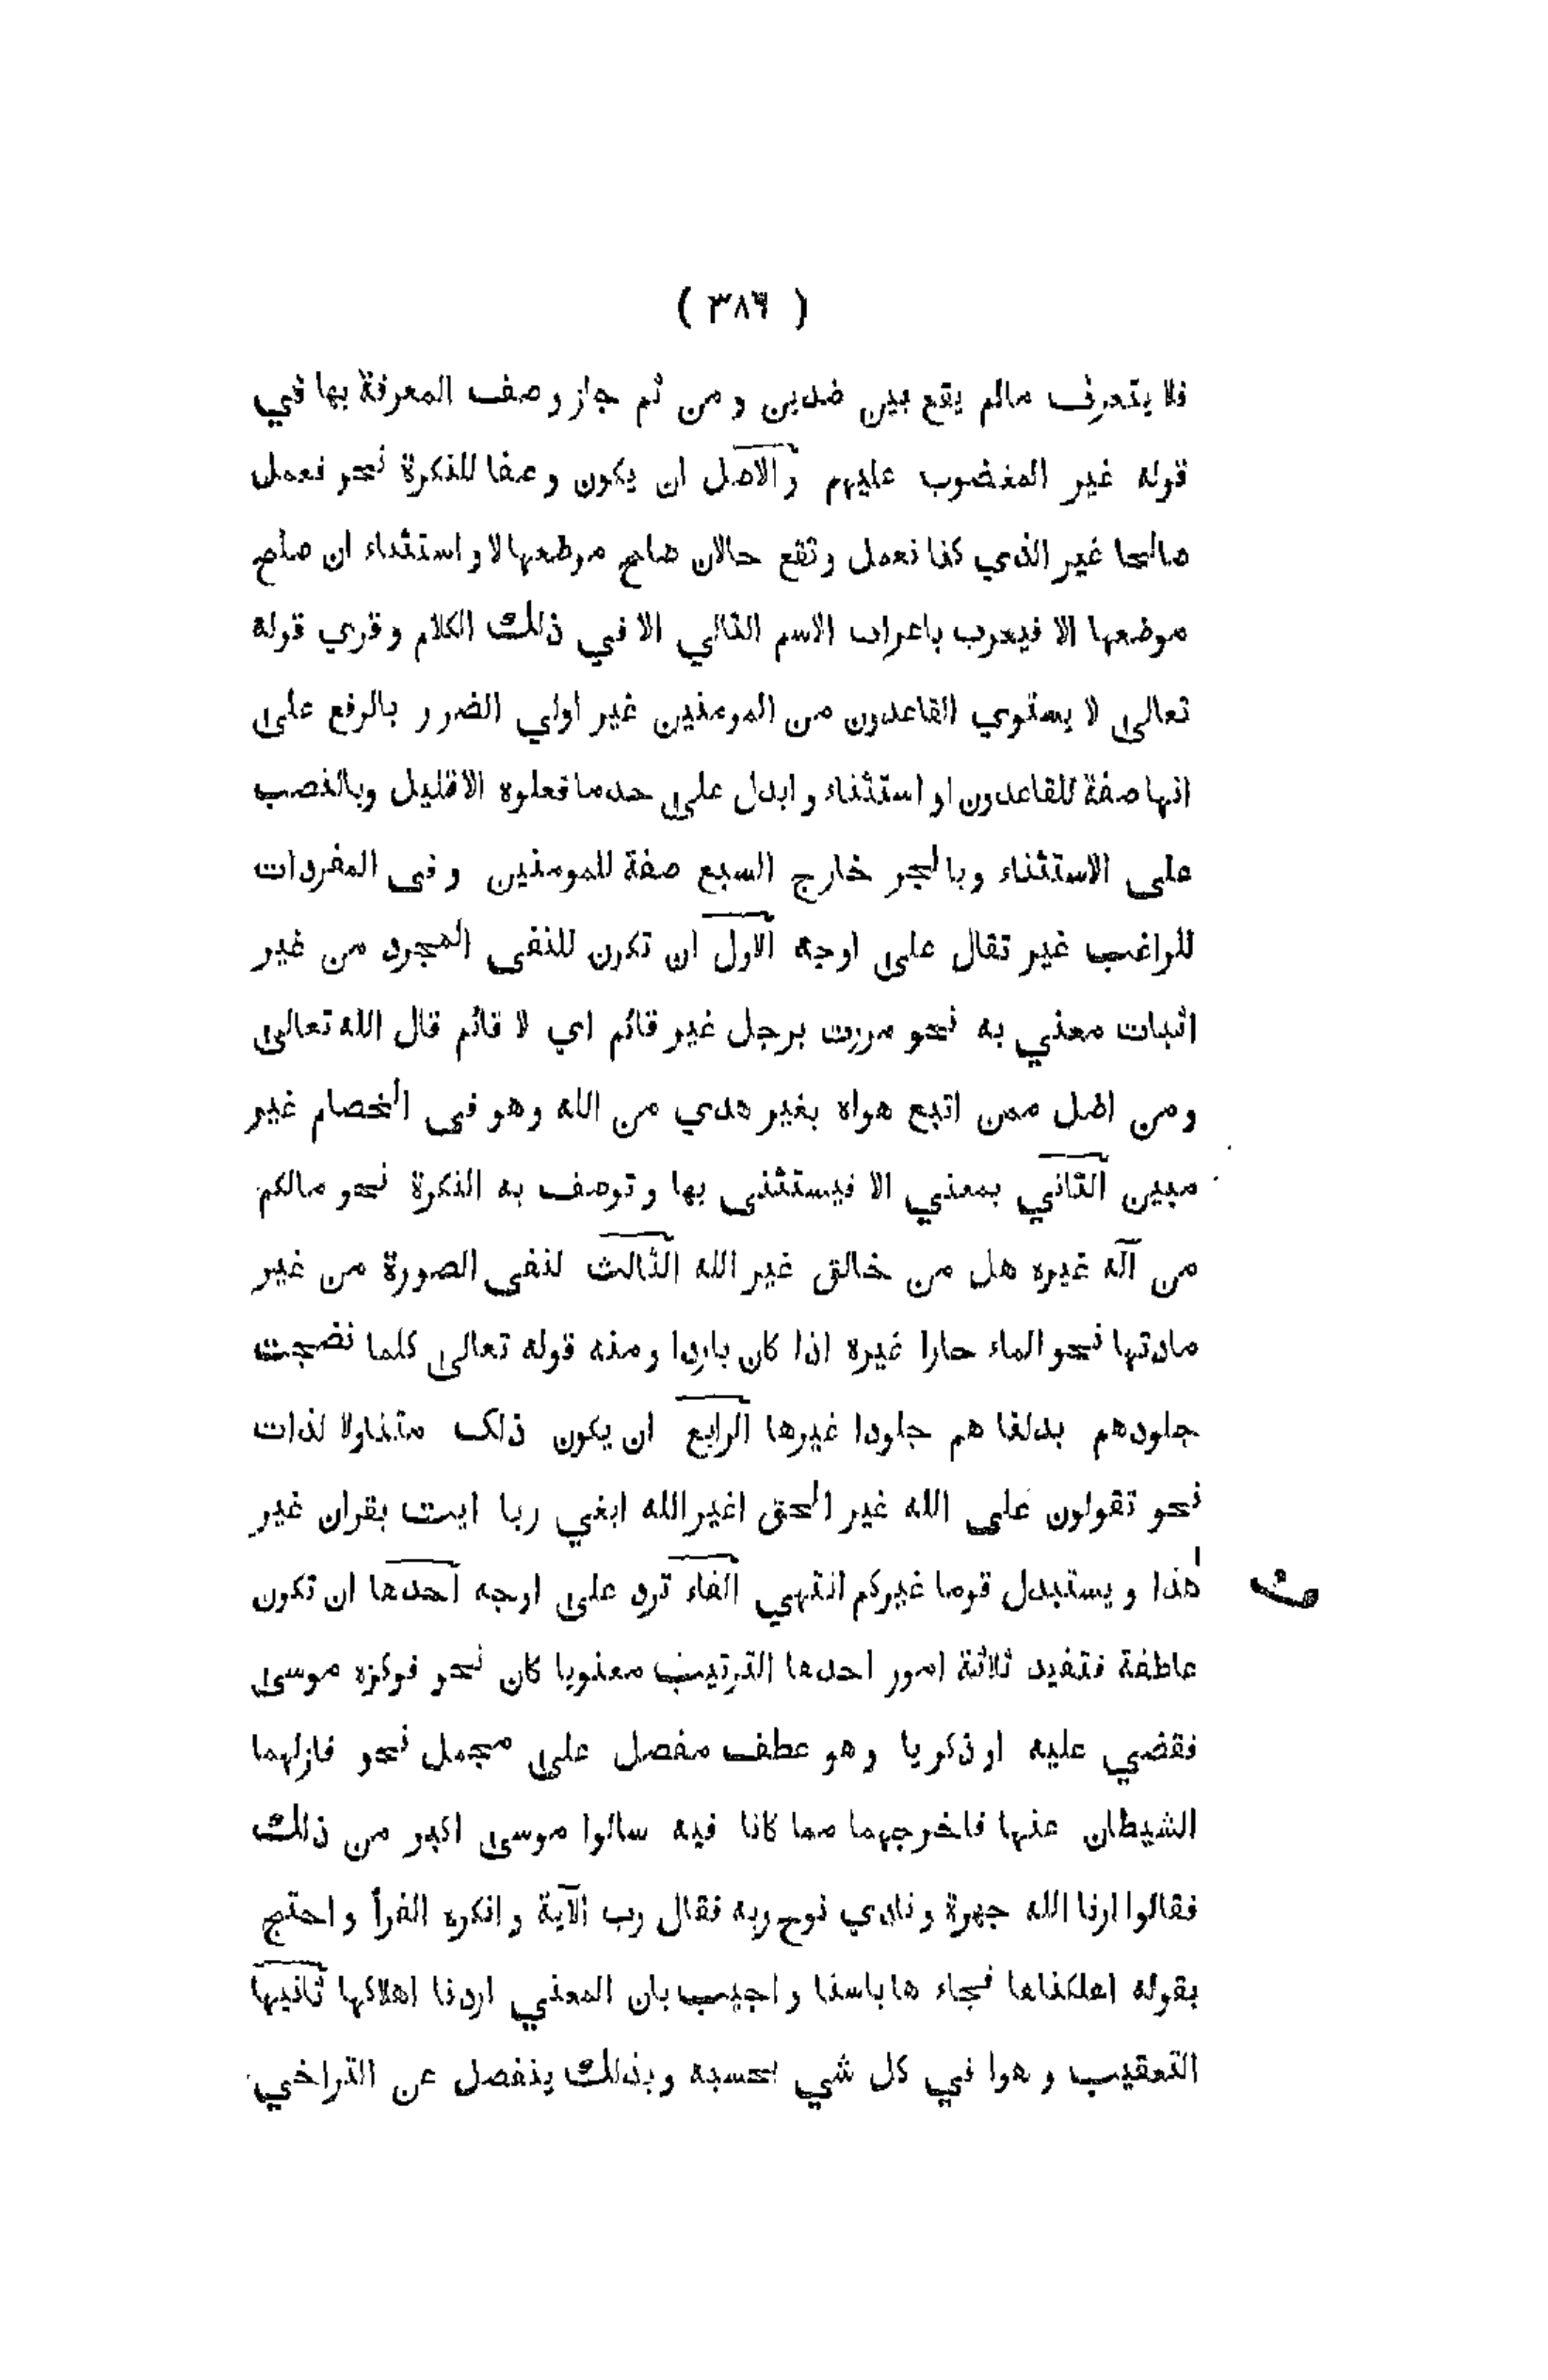 ( ٣٨٦ )
فلا يتعرف مالم يقع بين ضدين و من ثم جاز وصف المعرفة بها في
قوله غير المغضوب عليهم والاصل ان يكون وصفا للنكرة نحو نعمل
صالحا غير الذي كنا نعمل وتقع حالان صلح موضعها لا و استثناء ان صلح
موضعها الا فيعرب باعراب الاسم التالي الا في ذلك الكلام وقري قوله
تعالى لا يستوي القاعدون من المومنين غير اولي الضرر بالرفع على
انها صفة للقاعدون او استثناء و ابدل على حد ما فعلوه الاقليل وبالنصب
على الاستثناء وبالجر خارج السبع صفة للمومنين وفى المفردات
للراغب غير تقال على اوجه الاول ان تكون للنفى المجرد من غير
اثبات معني به نحو مررت برجل غير قائم اي لا قائم قال الله تعالى
ومن اضل ممن اتبع هواه بغير هدي من الله وهو فى الخصام غير
مبين الثاني بمعني الا فيستثنى بها وتوصف به النكرة نحو مالكم
من آله غيره هل من خالق غير الله الثالث لنفى الصورة من غير
مادتها نحو الماء حارا غيره اذا كان باردا ومنه قوله تعالى كلما نضجت
جلودهم بدلنا هم جلودا غيرها الرابع ان يكون ذلك متناولا لذات
نحو تقولون على الله غير الحق اغير الله ابغي ربا ايت بقران غير
هذا و يستبدل قوما غيركم انتهي الفاء ترد على اوجه احدها ان تكون
عاطفة فتفيد ثلاثة امور احدها الترتيب معنويا كان نحو فوكزه موسى
فقضي عليه او ذكريا وهو عطف مفصل على مجمل نحو فازلهما
الشيطان عنها فاخرجهما مما كانا فيه سالوا موسى اكبر من ذلك
فقالوا ارنا الله جهرة ونادي نوح ربه فقال رب الآية وانكره الفرأ واحتج
بقوله اهلكناها فجاء ها باسنا و اجيب بان المعني اردنا اهلاكها ثانيها
التعقيب وهوا في كل شي بحسبه وبذلك ينفصل عن التراخي